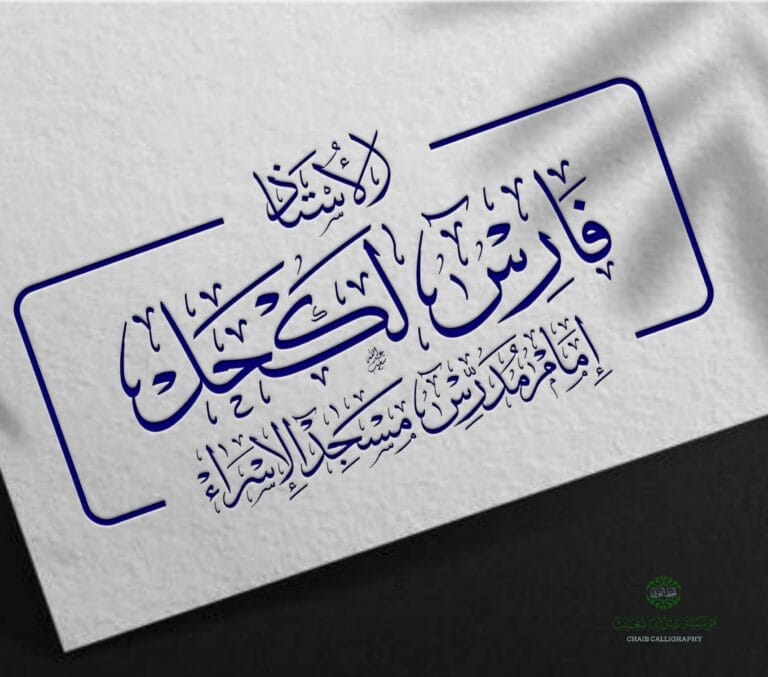 الأُسْتَاذ
فَارِسْ لَكْحَل
إِمَامْ مُدَرِّسْ مَسْجِد الإِسْرَاء
CHAIB CALLIGRAPHY